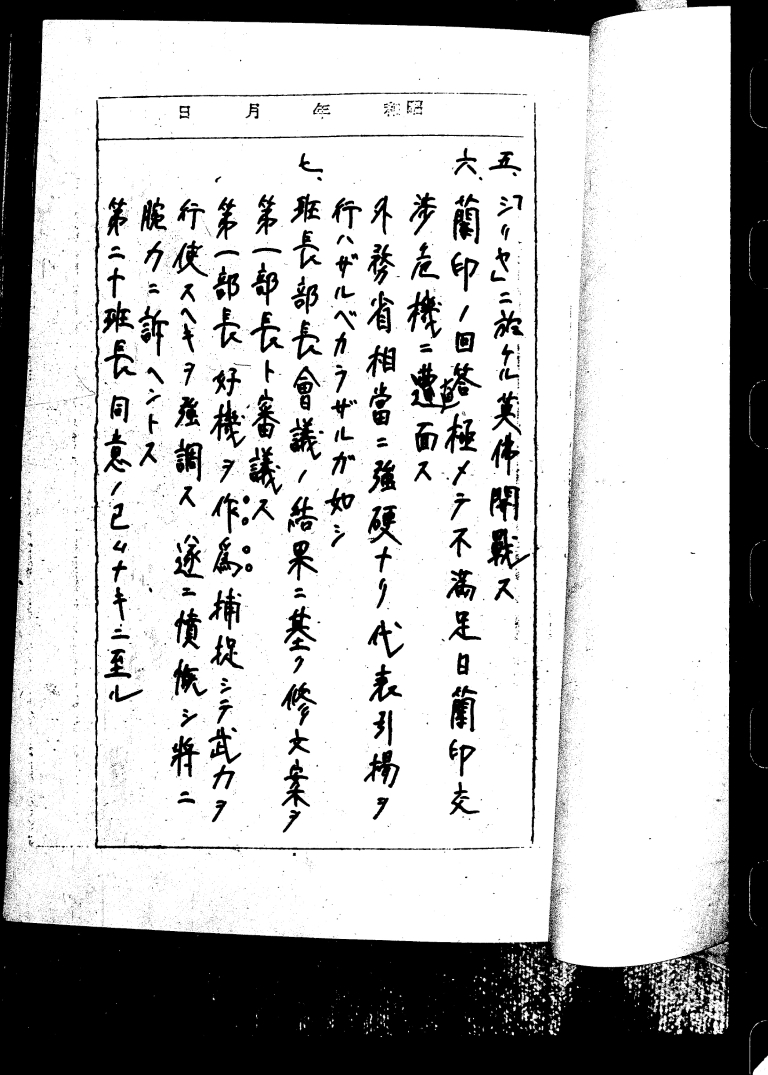 昭和　年　月　日
五、「シリヤ」ニ於ケル英佛開戰ス
六、蘭印ノ回答極メテ不滿足日蘭印交
渉危機ニ遭直面ス
外務省相當ニ強硬ナリ代表引揚ヲ
行ハザルベカラザルガ如シ
七、班長部長會議ノ結果ニ基ク修文案ヲ
第一部長ト審議ス
第一部長好機ヲ作為捕捉シテ武力ヲ
行使スヘキヲ強調ス遂ニ憤慨シ將ニ
腕力ニ訴ヘントス
第二十班長同意ノ已ムナキニ至ル